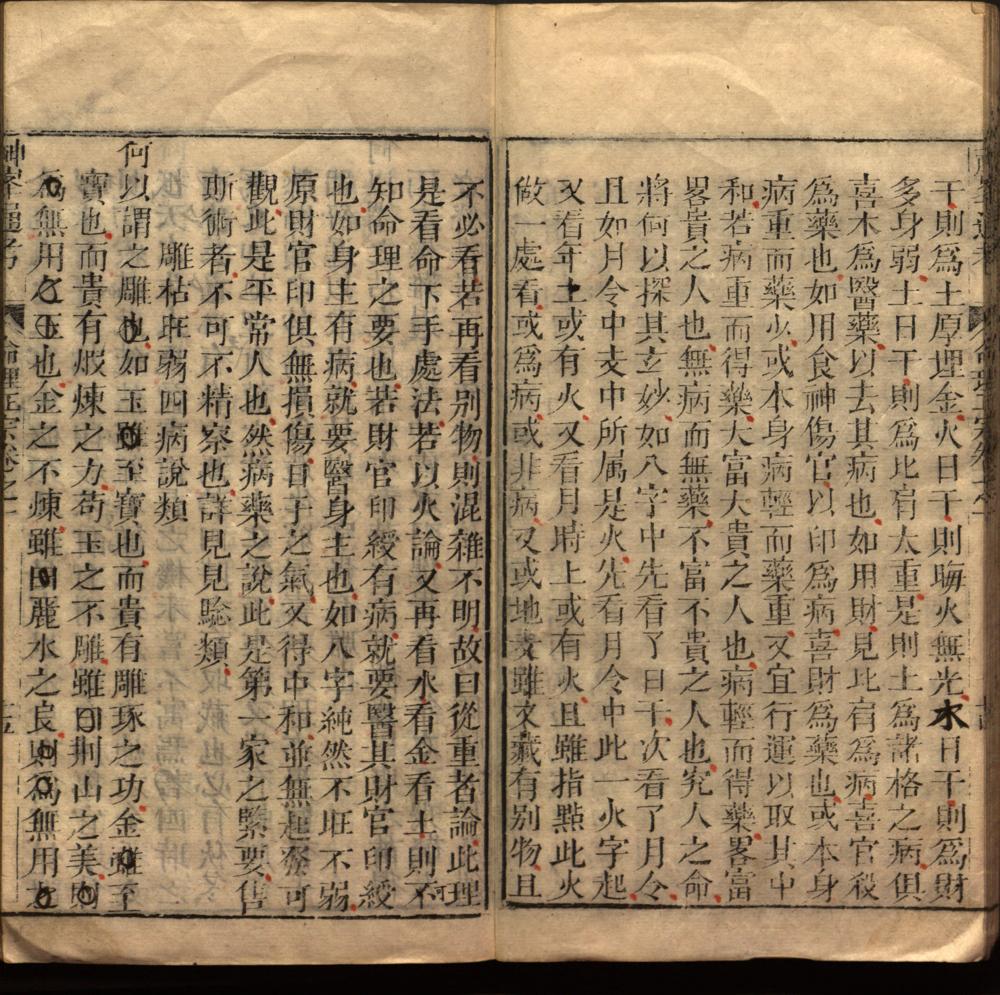 干則為土厚埋金火日干則晦火無光水日干則為財
多身弱土日干則為比肩太重是則土為諸格之病俱
喜木為醫藥以去其病也如用財見比肩為病喜官殺
為藥也如用食神傷官以印為病喜財為藥也或本身
病重而藥少或本身病輕而藥重又宜行運以取其中
和若病重而得藥大富大貴之人也病輕而得藥畧富
畧貴之人也無病而無藥不富不貴之人也究人之命
將何以探其玄妙如八字中先看了日干次看了月令
且如月令中支中所属是火先看月令中此一火字起
又看年上或有火又看月時上或有火且雖指點此火
做一處看或為病或非病又或地支雖文藏有别物且
不必看若再看别物則混雜不明故曰從重者論此理
是看命下手處法若以火論又再看水看金看土則不
知命理之要也若財官印綬有病就要醫其財官印綬
也如身主有病就要醫身主也如八字純然不旺不弱
原財官印俱無損傷日干之氣又得中和並無起發可
觀此是平常人也然病藥之說此是第一家之緊要售
斯術者不可不精察也詳見見驗類
雕枯旺弱四病說類
何以謂之雕也如玉雖至寶也而貴有雕琢之功金雖至
寶也而貴有煆煉之力苟玉之不雕雖曰荆山之美則
為無用之玉也金之不煉雖曰麗水之良則為無用之
神峯通考 命理正宗卷之一 十五